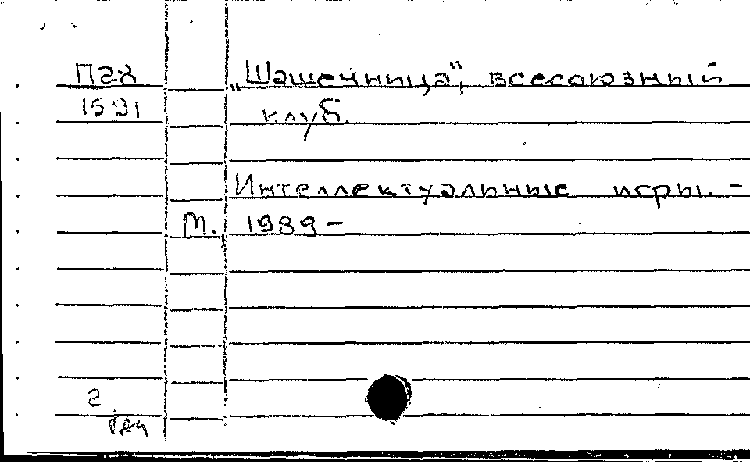 П2х „Шашечница“, всесоюзный
1591 клуб.
Интеллектуальные игры. –
М. 1989 –
2